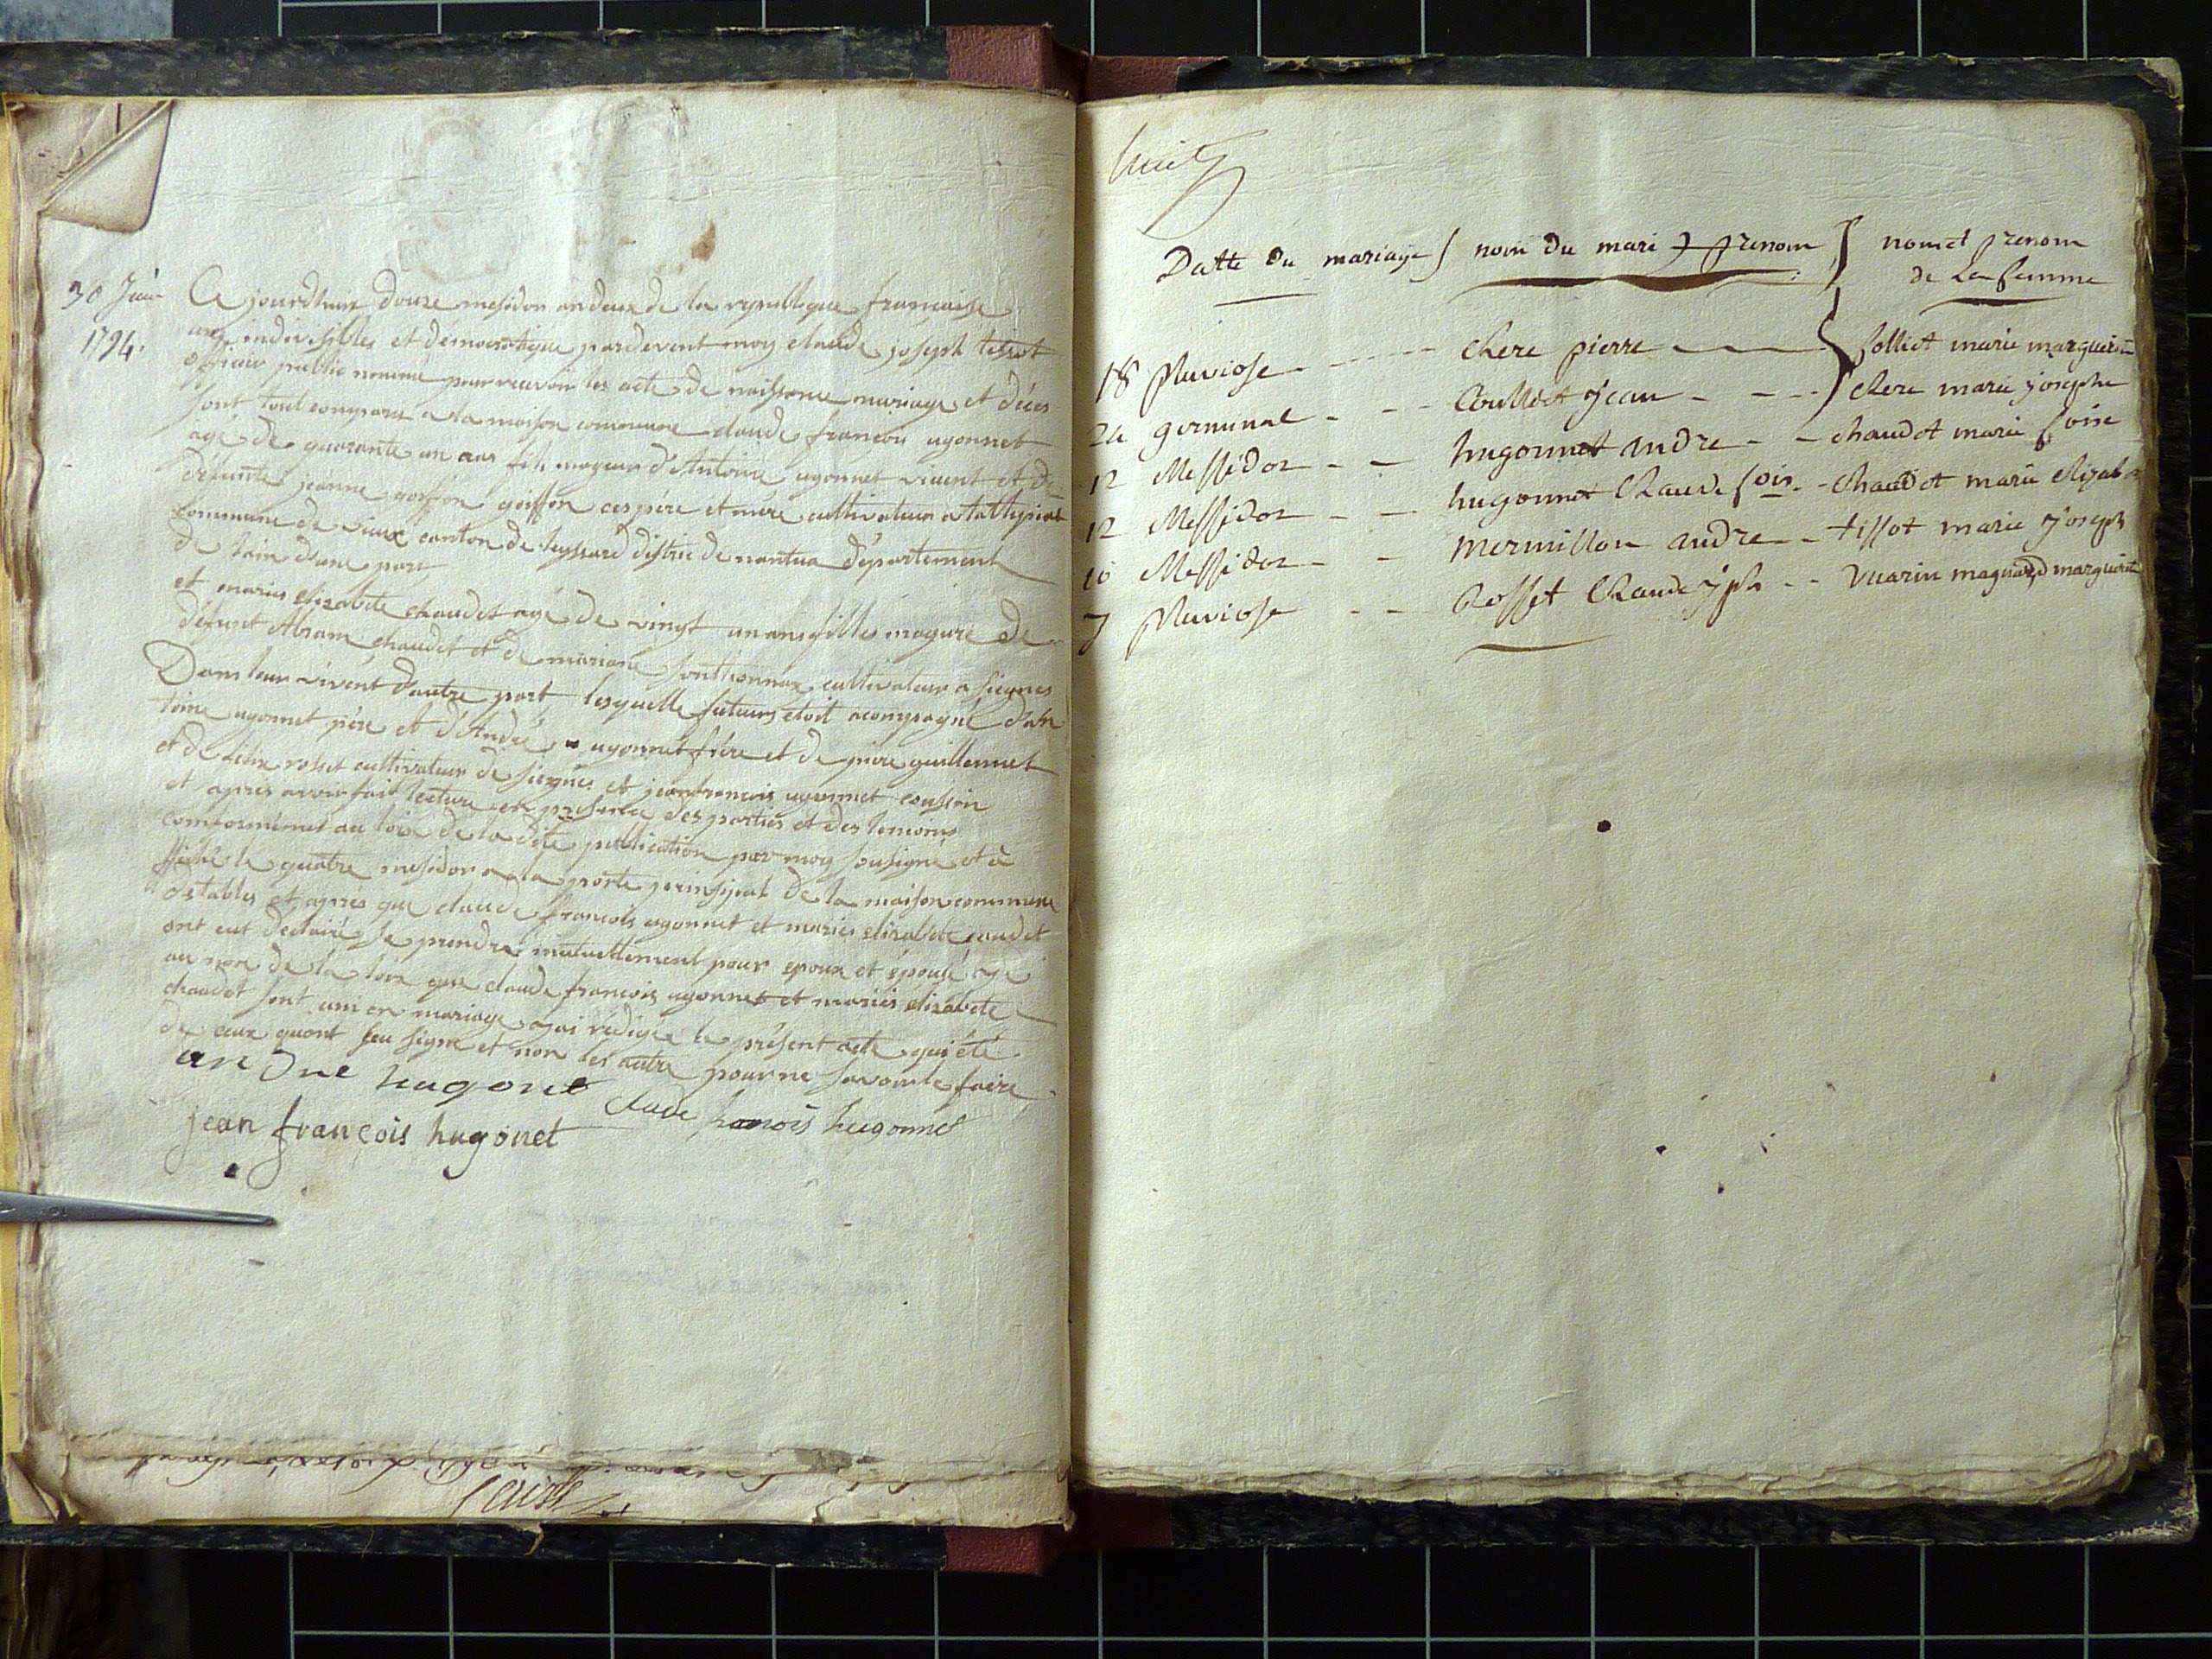 30 Juin
1794.
Ce jourdhuis douze mesidor an deux de la republique francaise
une indivisibles et démocratique pardevent moy claude joseph tissot
officier public nommé pour recevoir les acte de naissance mariage et décès
sont tout comparu a la maison commune claude francois ugonnet
agé de quarante un ans fils mageur d'Antoine ugonnet vivent et de
défunte jeanne goiffon ces père et mère cultivateur a
commune de vieux canton de leyssard distric de nantua département
de lain d'une part
et marie elisabete chaudet agé de vingt un ans filles mageure de
défunt Abram chaudet et de mariane cultivateur a siegnes
Dans leur vivent d'autre part lesquelle futeurs etoit acompagné d'An
toine ugonnet père et d'André ugonnet frère et de piere guillermet
et de felix rosset cultivateur de siegnes et jean francois ugonnet coussin
et apres avoir fait lecture en presence des parties et des temoins
conformément au loix de la dite publication par moy sousigné et a
ffiché le quatre mesidor a la porte prinsipal de la maison commune
d'stables et après que claude francois ugonnet et maries elisabete caudet
ont eut déclairé se prendre mutuellement pour epoux et épouse aje
au nom de la loix que claude francois ugonnet et maries elisabete
chaudet sont uni en mariage ajai rédigée le présent acte qui été
de ceux quont seu signe et non les autre pour ne savoir le faire
andre hugonet
claude francois hugonnet
jean françois hugonet
huit
Datte du mariage nom du mari & prenom nom et prenom
de la femme
18 pluviose - - - chere pierre - - - follict marie marguerite
22 germinal - - - Coulloct jean - - - chere marie josephe
12 Messidor - - hugonnet andre - - chaudet marie foise
12 Messidor - - hugonnet Claude fois - - chaudet marie elizab
10 Messidor - - mermillon andre - - tissot marie joseph
7 pluviose - - Rosset Claude jph - - vuarin magnard marguerite